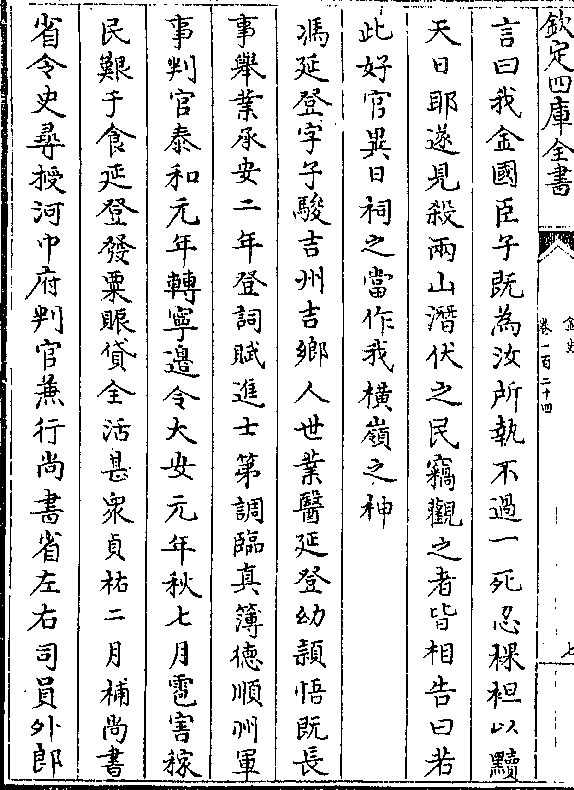 欽定四庫全書
金史
卷一百二十四
七
言曰我金國臣子既為汝所執不過一死忍裸袒以黷
天日耶遂見殺兩山潛伏之民竊觀之者皆相告曰若
此好官異日祠之當作我橫嶺之神
馮延登字子駿吉州吉鄉人世業醫延登幼穎悟既長
事舉業承安二年登詞賦進士第調臨真簿德順州軍
事判官泰和元年轉寧邊令大安元年秋七月雹害稼
民艱于食延登發粟賑貸全活甚衆貞祐二月補尚書
省令史尋授河中府判官兼行尚書省左右司員外郎